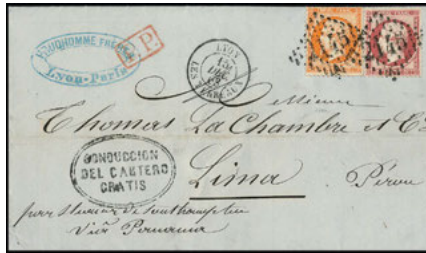 PRUDHOMME FRÈRES
Lyon-Paris
P.P.
LYON
LES TERREAUX
Messieurs
Thomas La Chambre et Co
CONDUCCION
DEL CARTERO
GRATIS
Lima Pérou
par Steamer de Southampton
Viâ Panama